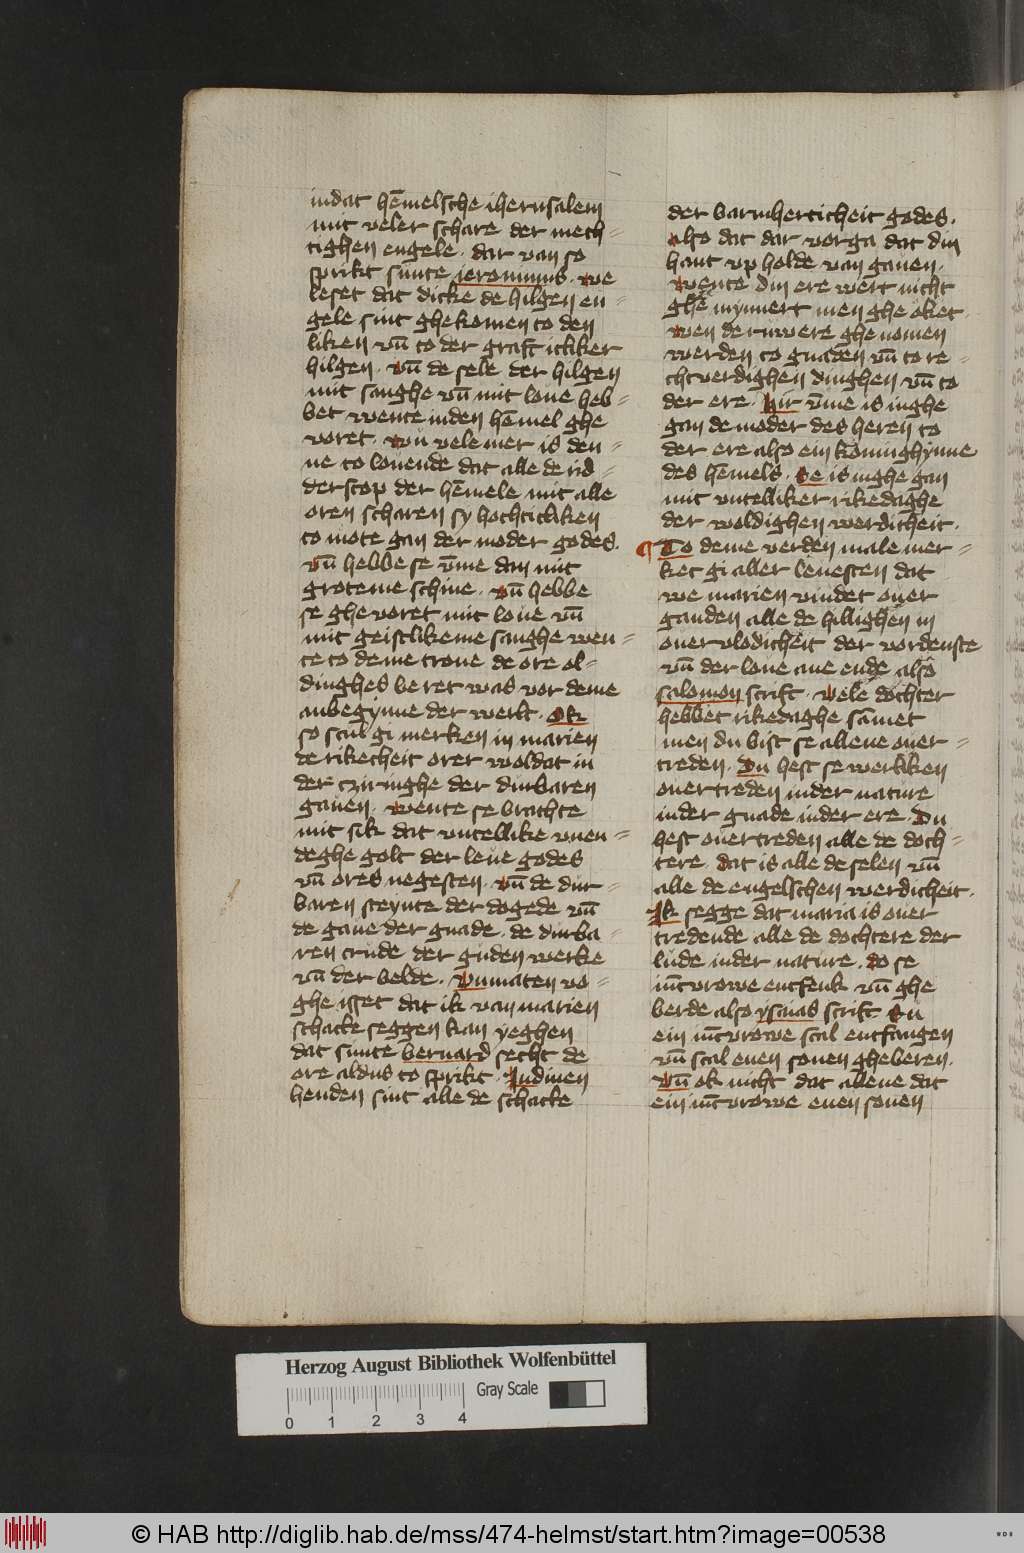 indat hēmelsche iherusalem
mit veler schare der mech=
tighen engele . dar van so
sprikt sunte ieronimus . we
leset dat dicke de hilgen en=
gele sint ghekomen to den
liken vn̄ to der graft icliker
hilgen . vn̄ de sele der hilgen
mit sanghe vn̄ mit loue heb=
bet wente inden hēmel ghe
voret . wu vele mer is den=
ne to louende dat alle de rid=
derscop der hēmele mit alle
oren scharen sy hochticliken
to mote gan der moder godes .
vn̄ hebbe se v̄me dan mit
groteme schine . vn̄ hebbe
se ghe voret mit loue vn̄
mit geistlikeme sanghe wen=
te to deme trone de ore ol=
dinghes beret was vor deme
anbegynne der werlt . Ok
so scul gi merken in marien
de rikecheit orer woldat in
der cziringhe der durbaren
gauen . wente se brachte
mit sik dat vntellike vnen=
deghe golt der leue godes
vn̄ ores negesten . vn̄ de dur=
baren steynte der dogede vn̄
de gaue der gnade . de durba=
ren crude der guden werke
vn̄ der belde . Vnmaten vo=
ghe isset dat ik van marien
schacke seggen kan yeghen
dat sunte bernard secht de
ore aldus to sprikt . In dinen
henden sint alle de schacke
der barmherticheit godes .
also dat dar vorga dat din
hant vp holde van gauen .
wente din ere wert nicht
ghe mynnert men ghe oket .
wen der were ghe nomen
werden to gnaden vn̄ to re=
chtverdighen dinghen vn̄ to
der ere . Hir v̄me is inghe
gan de moder des heren to
der ere also ein koninghynne
des hēmels . Se is inghe gan
mit vntelliker rikedaghe
der woldighen werdicheit .
¶ To deme verden male mer=
ket gi aller leuesten dat
we marien vindet ouer
ganden alle de hillighen in
ouervlodicheit der vordenste
vn̄ der loue ane ende also
salomon scrift . Vele dochter
hebbet rikedaghe sāmet
men du bist se allene ouer=
treden . Du hest se werliken
ouertreden inder nature
inder gnade inder ere . Du
hest ouertreden alle de doch=
tere . dat is alle de selen vn̄
alle de engelschen werdicheit .
Ik segge dat maria is ouer
tredende alle de dochtere der
lude inder nature . do se
iūcvrowe entfenk vn̄ ghe
berde also ysaias scrift Su
ein iūcvrowe scal entfangen
vn̄ scal enen sonen gheberen .
Vn̄ ok nicht dat allene dat
ein iūcvrowe enen sonen
Herzog August Bibliothek Wolfenbüttel
Gray Scale
0 1 2 3 4
© HAB http://diglib.hab.de/mss/474-helmst/start.htm?image=00538